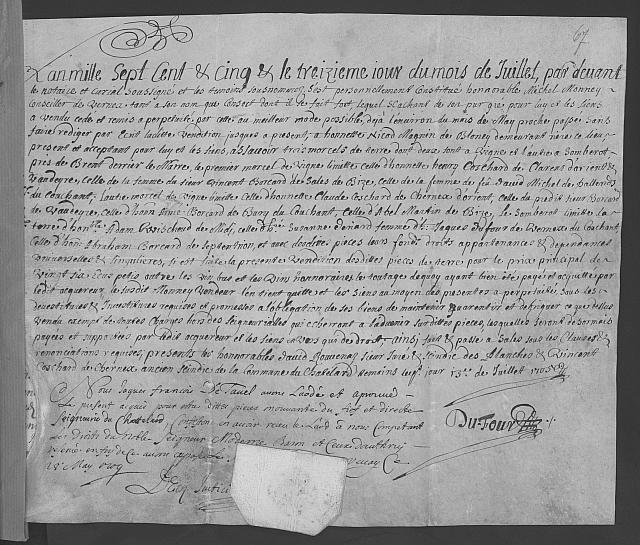 67
L'an mille Sept Cent & Cinq & le treizieme jour du mois de Juillet, par devant
le notaire et curial soussigné et les temoins sousnommés, s'est personnellement Constitué honnorable Michel Monney
Conseiller de Vernea tant à son nom que
a vendu cede et remis à perpetuité par cette au meilleur mode possible, déjà l'environ du mois de May proche passé sans
faire rediger par Ecrit laditte Vendition jusques a present, a honneste Nicod Magnin de Bloney demeurant riere ce lieu
present et acceptant pour luy et les siens, a sçavoir trois morcels de terre dont deux sont à Vigne et l'autre à Somberot
près de Brent derrier le Marre, le premier morcel de Vigne limitte celle d'honneste henry Coschard de Clarens d'orient &
Vaudeyre, Celle de la femme du sieur Vincent Borcard de Sales de Bize, Celle de la femme de feu David Michel de
du Couchant, l'autre morcel de Vigne limitte Celle d'honneste Claude Coschard de Chernex d'orient, celle du predit sieur Borcard
de Vaudeyre, Celle d'hon Borcard de Bury du Couchant, & d'Abel Martin de Bize, le Somberot limitte la
terre d'hon Adam de Midi, celle d'h Susanne Deniard femme d'h Jaques Dufour de Vernea du Couchant,
Celle d'hon Abraham Borcard de Septentrion, et avec lesdites pieces leurs fonds droits appartenances & dependances
Universelles & singulieres, si est faitte la presente Vendition desdittes pieces de terre pour le prix principal de
Vingt six Ecus petis outre les vin bus et les Vins honnoraires le toutage dequoy ayant bien été payé et acquitté par
ledit acquereur, le susdit Monney Vendeur l'en tient quitte et les siens au moyen des presentes a perpetuité sous les
devestitures & Investitures requises et promesses à l'obligation de ses biens de maintenir & garentir et defriquer ce que dessus
Vendu exempt de toutes Charges hors des seigneurialles qui echerront a l'advenir surdittes pieces, lesquelles seront desormais
payées et supportées par ledit acquereur et les siens envers qui de droit. ainsi fait & passé a Sales sous les Clauses &
renonciations requises, presents les honnorables David sieur Juré & Scindic des Planches & Vincent
Coschard de Chernex ancien Scindic de la Commune du Chatelard temoins jour 13 de Juillet 1705
Nous Jaques François De Tavel avons Laodé et aprouvé
Le present acquis pour dittes pieces mouvante du fief et directe
Seigneurie du Chattelard, Confession avoir receu le Laod à nous Competant
Les Droits du Noble Seigneur Moderne Baron et Ceux d'authruy
en foy de ce avons
May 1709
Du-Four